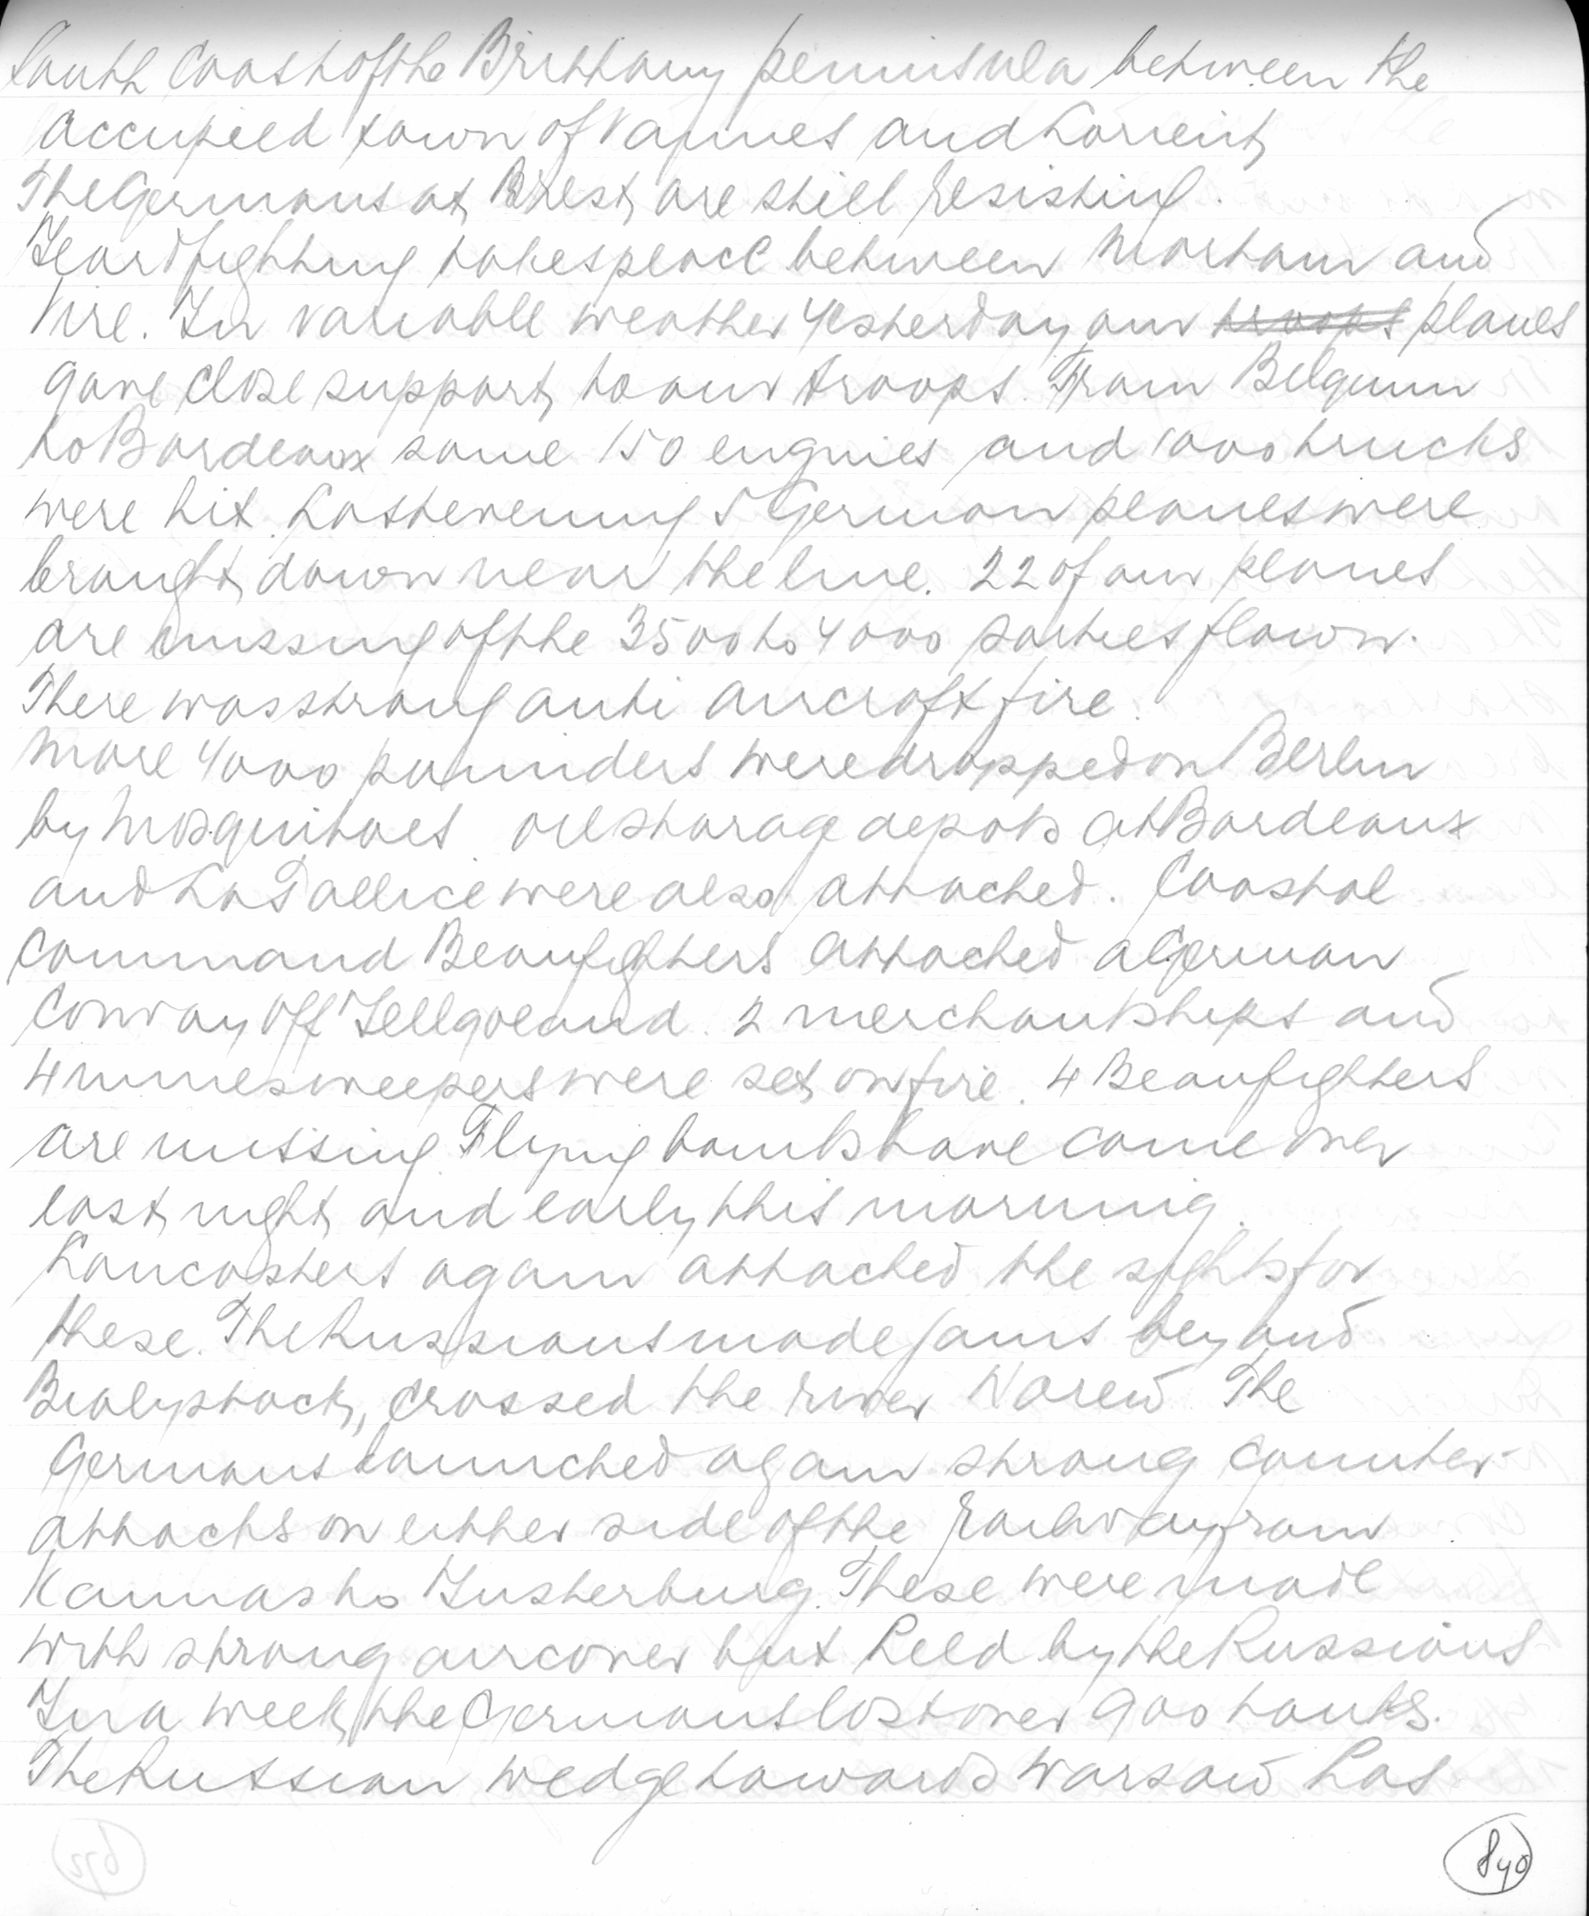 South Coast of the Brittany peninsula between the
accupied town of Vannes and Lorient,
The Germans at Brest are still resisting.
Heard fighting takes place between Mortain and
Vire. In variable weather yesterday our troops planes
gave close support to our troops. From Belgium
to Bordeaux some 150 engines and 1000 trucks
were hit. Last evening 5 German planes were
brought down near the line. 22 of our planes
are missing of the 3500 to 4000 sorties flown.
There was strong anti aircraft fire.
More 4000 pounders were dropped on Berlin
by Mosquitoes. oil storage depots at Bordeaux
and La Pallice were also attacked. Coastal
Command Beaufighters attacked a German
Convoy off Hellgoland. 2 merchantships and
4 minesweepers were set on fire. 4 Beaufighters
are missing. Flying bombs have come over
last night and early this morning.
Lancasters again attacked the sights for
these. The Russians made gains beyond
Bialystock, crossed the river Narew. The
Germans launched again strong counter-
attacks on either side of the railway from
Kaunas to Insterburg. These were made
with strong aircover but held by the Russians
In a week the Germans lost over 900 tanks.
The Russian wedge towards Warsaw has
840